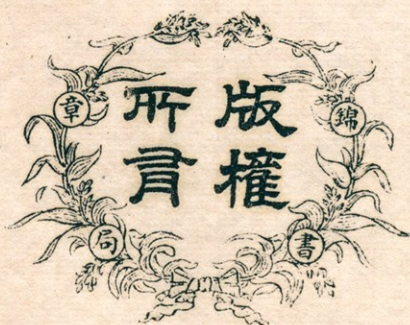 版權
所有
錦章
書局